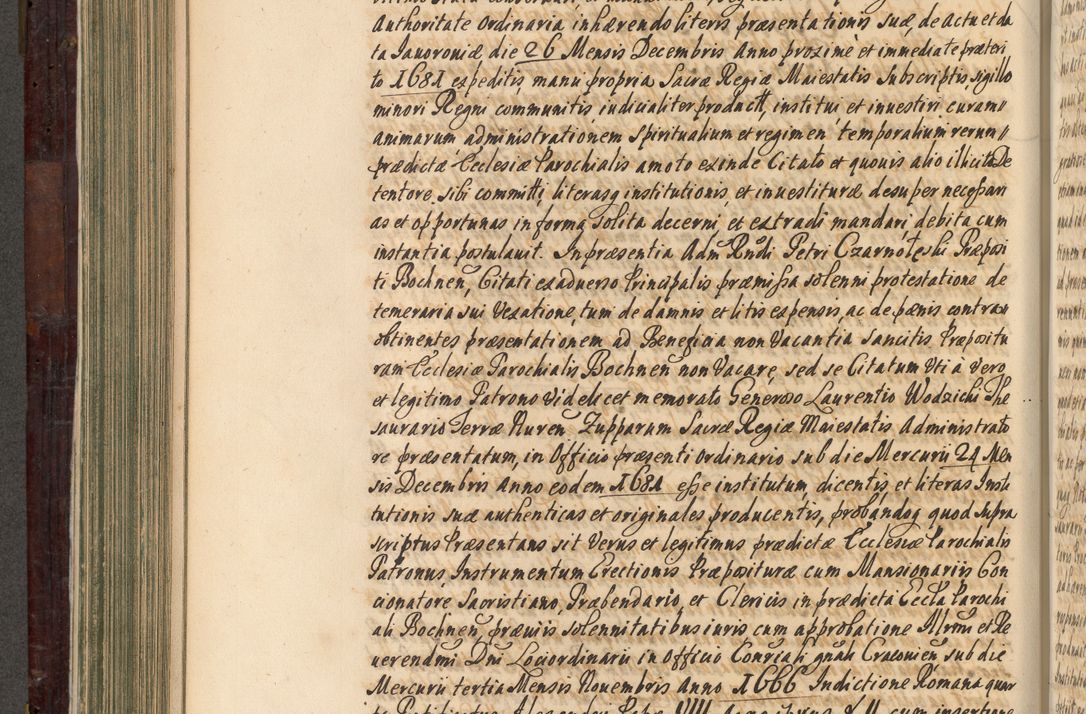 Authoritate Ordinaria inhærendo literis præsentationis suæ, de actu et da
ta Javoroviæ die 26 Mensis Decembris Anno proximè et immediate præteri
to 1681 expeditis, manu propria Sacræ Regiæ Maiestatis subscriptis, sigillo
minori Regni communitis, iudicialiter product, institui et investiri curam
animarum administrationem spiritualium et regimen temporalium rerum
prædictæ Ecclesiæ Parochialis amoto exinde Citato et quovis alio illicito De
tentore sibi committi, literasq institutionis et investituræ desuper necessari
as et opportunas in forma solita decerni et extradi mandari debita cum
instantia postulavit. In præsentia Adm Rndi Petri Czarnoteski Præposi
ti Bochnen, Citati ex adverso Principalis præmissa solenni protestatione de
temeraria sui Vexatione, tum de damnis et litis expensis, ac de pænis contra
obtinentes præsentationem ad Beneficia non Vacantia sancitis Præpositu
ram Ecclesiæ Parochialis Bochnen non Vacare, sed se Citatum Uti à vero
et legitimo Patrono videlicet memorato Generoso Laurentio Wodzicki The
saurario Terræ Nuren Zupparum Sacræ Regiæ Maiestatis Administrato
re præsentatum, in Officio præsenti ordinario sub die Mercurii 24 Men
sis Decembris Anno eodem 1681 esse institutum, dicentis et literas Insti
tutionis suæ authenticas et originales producentis, probandoq quod supra
scriptus Præsentans sit Verus et legitimus prædictæ Ecclesiæ Parochialis
Patronus, Instrumentum Erectionis Præposituræ cum Mansionariis Con
cionatore Sacristiano, Præbendario, et Clericis in prædicta Eccla Parochi
ali Bochnen, præviis solennitatibus iuris cum approbatione Illrmi et Re
verendmi Dni Lociordinarii in Officio Consriali gnali Cracovien sub die
Mercurii tertia Mensis Novembris Anno 1666 Indictione Romana quar